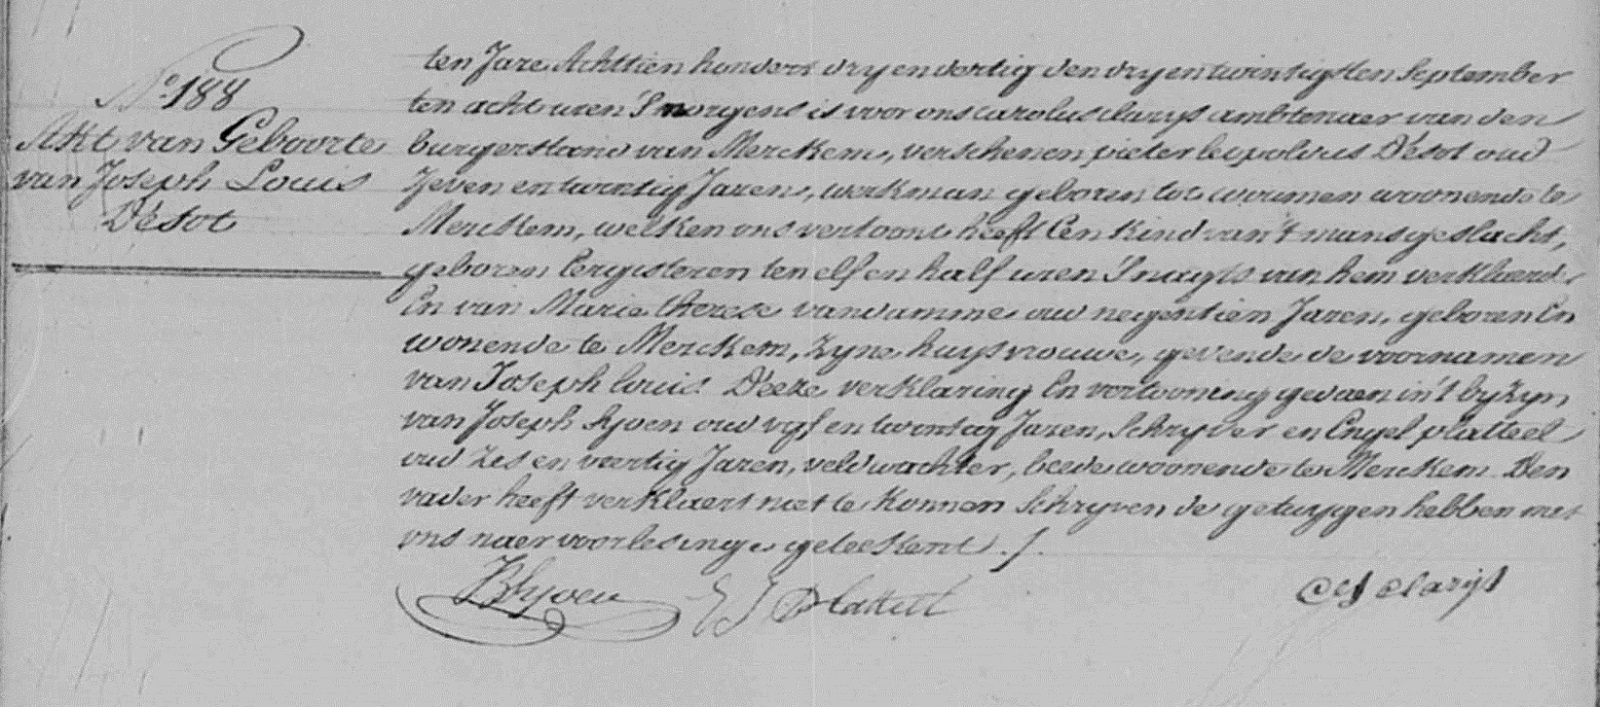 N.º 188
Akt van Geboorte
van Joseph Louis
Désot
ten Jare Achttien honderd dry en dertig den dry en twintigsten September
ten acht uren 's morgens is voor ons carolus clarys ambtenaer van den
burgerstand van Merckem, verschenen pieter leopoldus Désot oud
zeven en twintig Jaren, werkman geboren tot woumen woonende te
Merckem, welken ons vertoont heeft Een Kind van 't mansgeslacht,
geboren Eergisteren ten elf en half uren 's nagts van hem verklaerder
En van Marie therese vandamme oud negentien Jaren, geboren En
wonende te Merckem, zyne huysvrouwe, gevende de voornamen
van Joseph louis. Deeze verklaring En vertooning gedaen in 't byzyn
van Joseph syoen oud vyf en twintig Jaren, Schryver en Engel platteel
oud zes en veertig Jaren, veldwachter, beede woonende te Merckem. Den
vader heeft verklaert niet te konnen Schryven de getuygen hebben met
ons naer voorlesinge geteekent ./.
Syoen E J Platteel
clarys